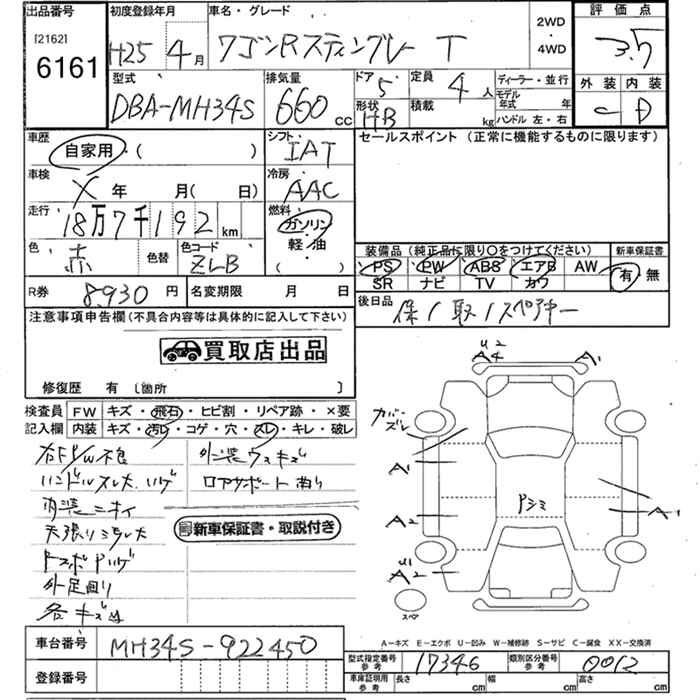 出品番号
[2162]
6161
初度登録年月
H25年4月
車名・グレード
ワゴンRスティングレー T
2WD
・
4WD
評価点
3.5
外装 内装
C D
型式
DBA-MH34S
排気量
660cc
ドア 5
形状 HB
定員 4人
積載 kg
ディーラー・並行
モデル年式 年
ハンドル 左・右
車歴
自家用・( )
シフト
IAT
セールスポイント(正常に機能するものに限ります)
車検
X年 月(日)
冷房
AAC
走行
18万7千192km
燃料
ガソリン
軽・油
( )
色
赤
色替
色コード
ZLB
装備品(純正品に限り○をつけてください)
新車保証書
PS PW ABS エアB AW
SR ナビ TV カワ
有 無
R券 8,930円
名変期限 月 日
後日品
保/取/スペアキー
注意事項申告欄(不具合内容等は具体的に記入して下さい)
買取店出品
修復歴 有 〔箇所 〕
検査員 FW キズ・飛石・ヒビ割・リペア跡・×要
記入欄 内装 キズ・汚レ・コゲ・穴・スレ・キレ・破レ
右FP/W不良
外装ウスキズ
ハンドルスレ大、ハゲ
ロアサポート曲り
内装ニオイ
天張りシミ大
新車保証書・取説付き
外足回り
各キズ
U2
A4
A1
カバーズレ
A1
A2
Pシミ
A1
U1
A2
スペア
A-キズ E-エクボ U-凹み W-補修跡 S-サビ C-腐食 XX-交換済
車台番号 MH34S-922450
登録番号
型式指定番号参考 17346
類別区分番号参考 0012
車庫証明用参考 長さ cm 幅 cm 高さ cm